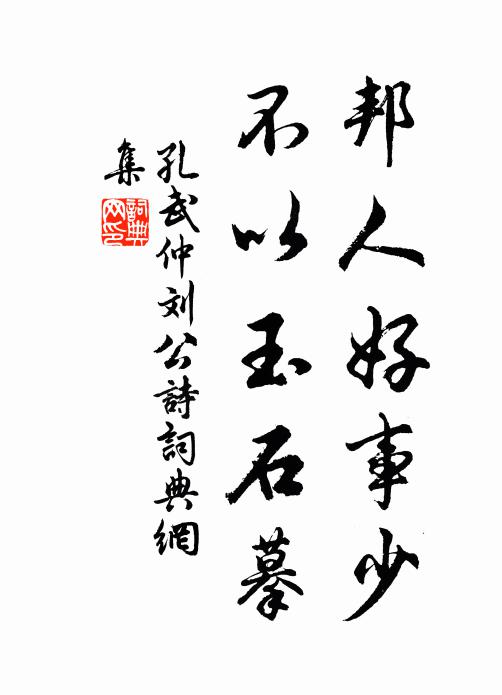 邦人好事少
不以玉石摹
孔武仲刘公詩詞典網
集
詞典
网印